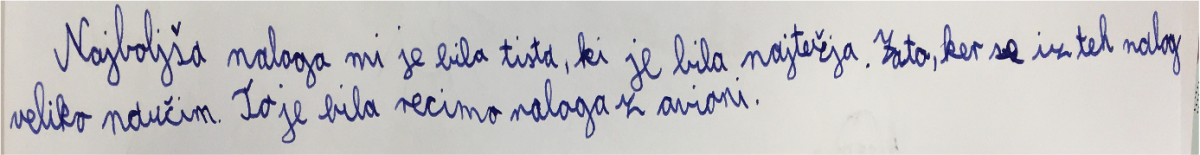 Najboljša naloga mi je bila tista, ki je bila najtežja. Zato, ker se iz teh nalog
veliko naučim. To je bila recimo naloga z avioni.